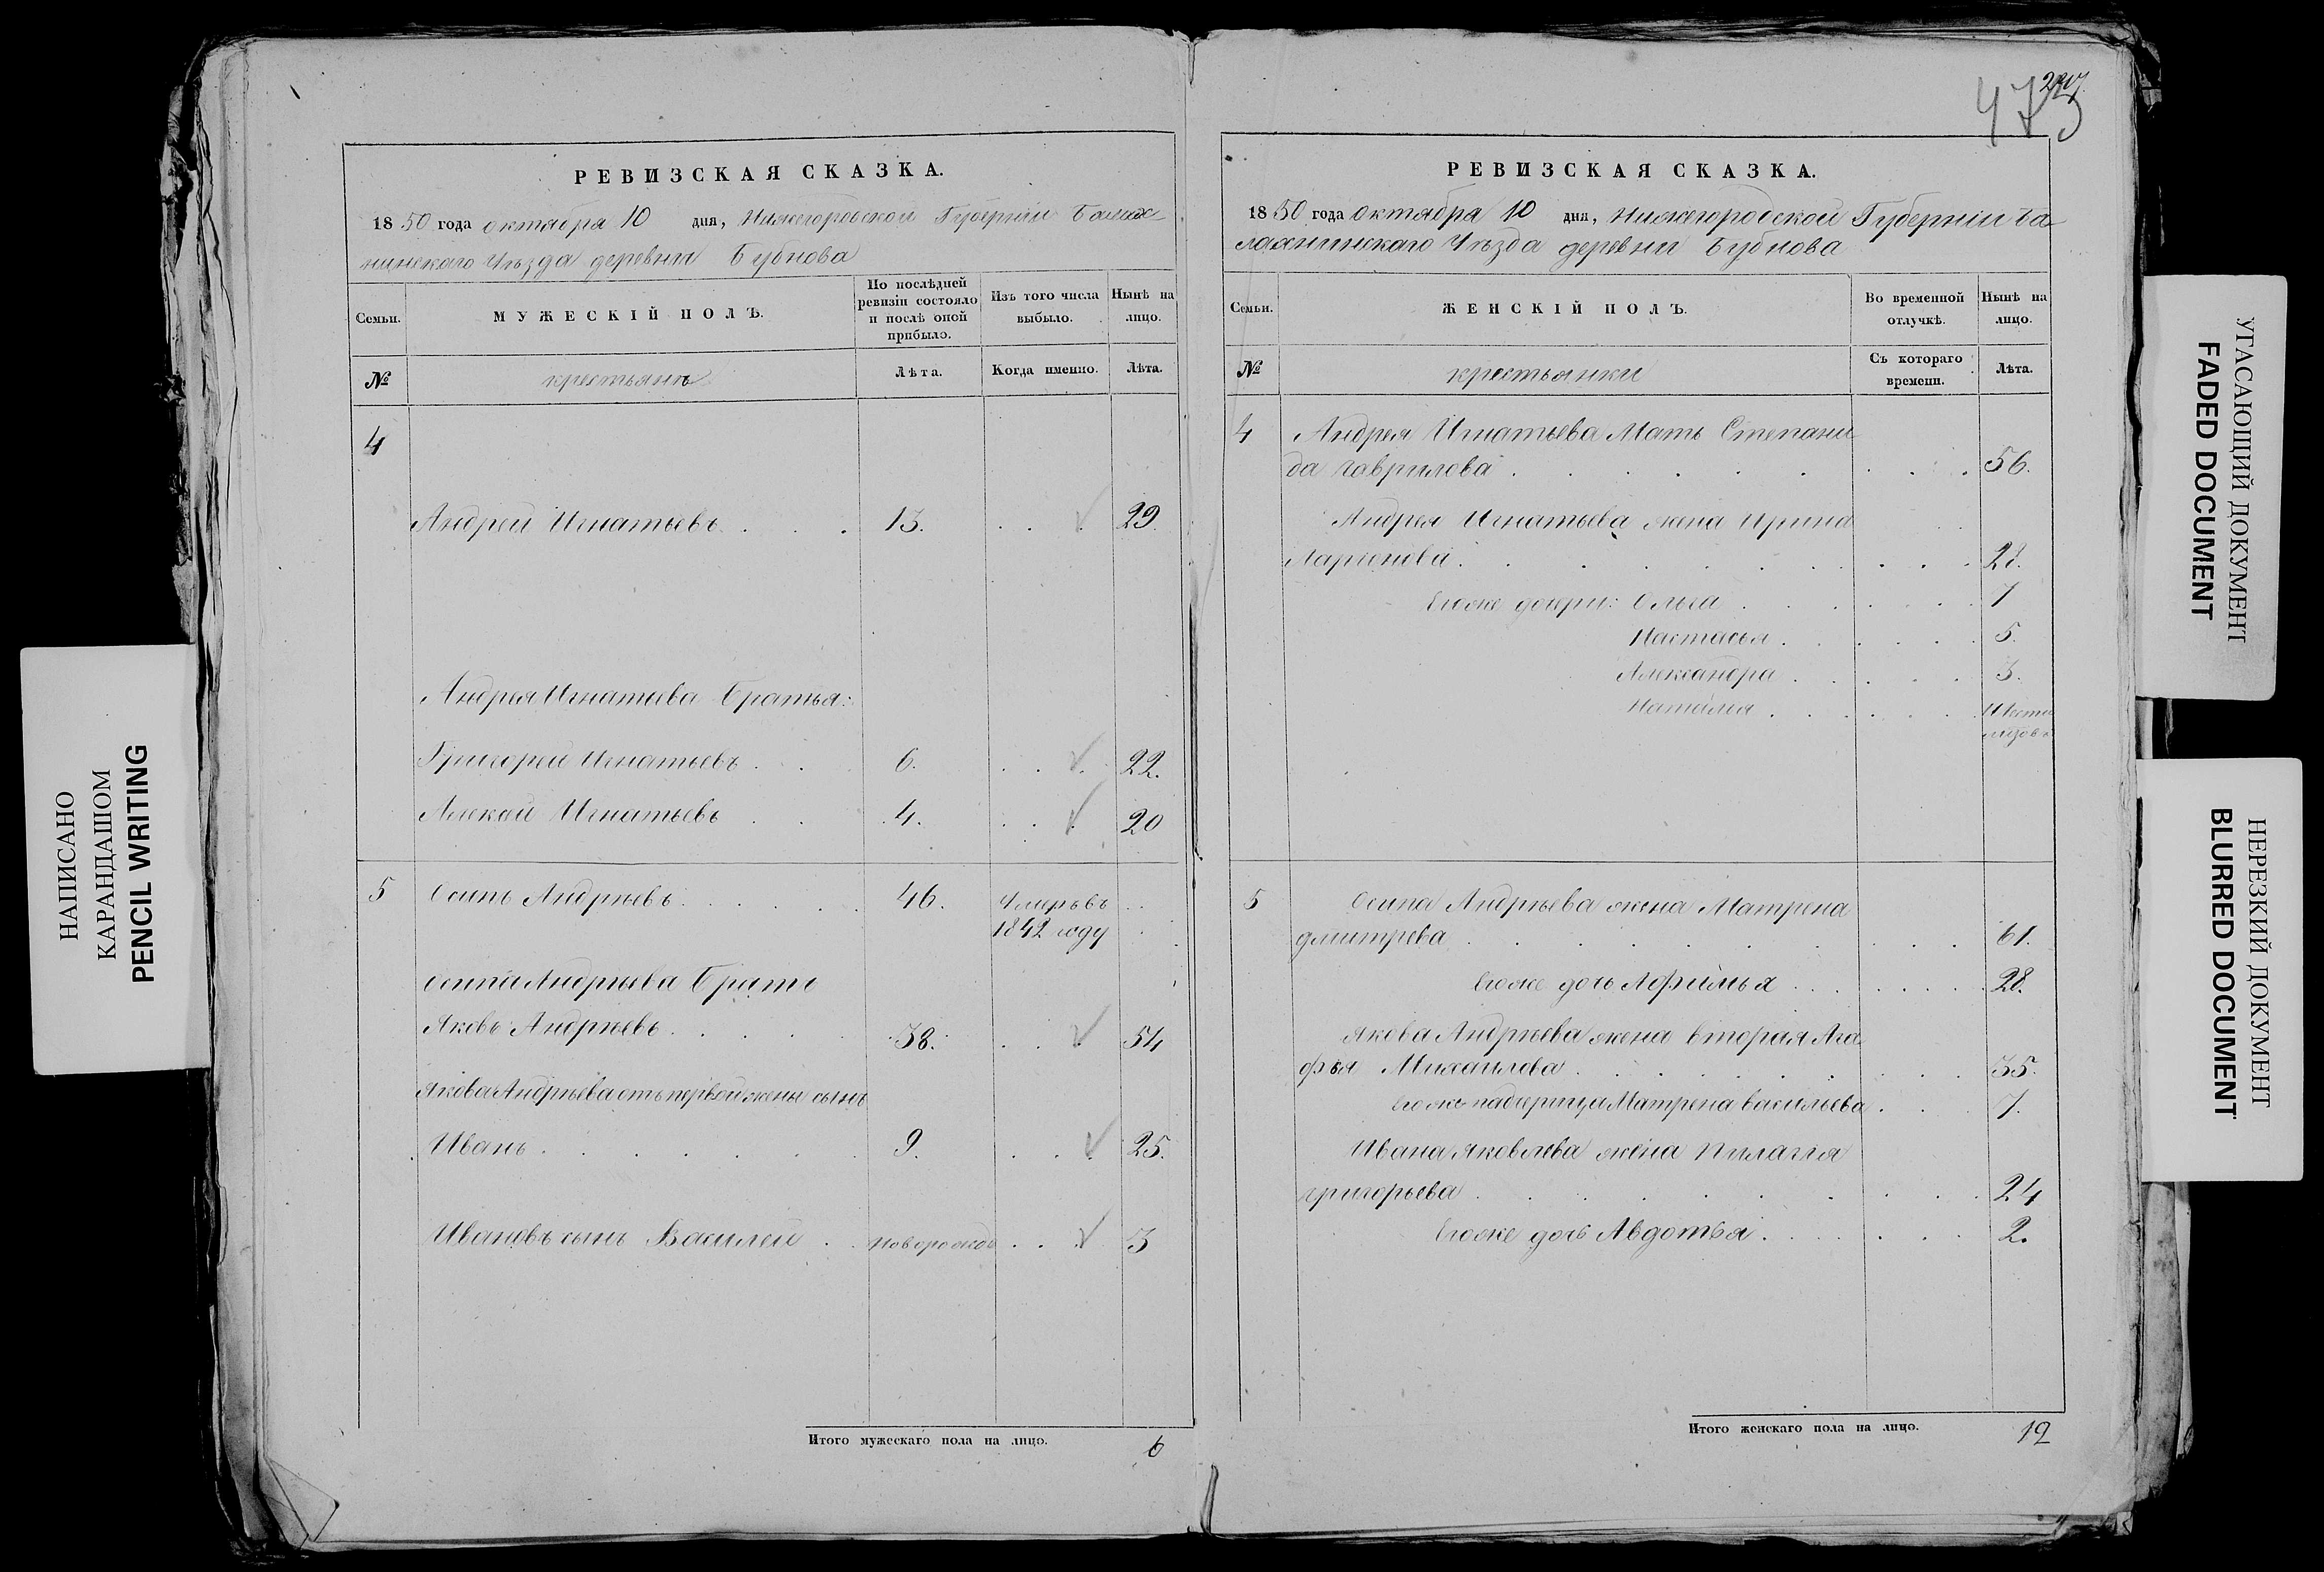 РЕВИЗСКАЯ СКАЗКА.
1850 года октября 10 дня, Нижегородской Губернии Балах-
нинскаго Уѣзда деревни Бубнова
Семьи.
МУЖЕСКІЙ ПОЛЪ.
По послѣдней
ревизіи состояло
и послѣ оной
прибыло.
Изъ того числа
выбыло.
Нынѣ на
лицо.
№
крестьянъ
Лѣта.
Когда именно.
Лѣта.
4
Андрей Игнатьевъ . . . 13. . . . 29.
Андрея Игнатьева Братья:
Григорей Игнатьевъ . . 6. . . . 22.
Алекей Игнатьевъ . . 4. . . . 20
5 Осипъ Андрѣевъ . . . . . 46. Умеръ въ
1842 году
Осипа Андрѣева Братъ
Яковъ Андрѣевъ . . . . 38. . . . 54
Якова Андрѣева отъ первой жены сынъ
Иванъ . . . . . . 9. . . . 25.
Ивановъ сынъ Василей . новорожд . . . 3
Итого мужескаго пола на лицо. 6
473
РЕВИЗСКАЯ СКАЗКА.
1850 года октября 10 дня, Нижегородской Губерніи Ба-
лахнинскаго Уѣзда деревни Бубнова
Семьи.
ЖЕНСКІЙ ПОЛЪ.
Во временной
отлучкѣ.
Нынѣ на
лицо.
№
крестьянки
Съ котораго
времени.
Лѣта.
4 Андрея Игнатьева Мать Степани-
да Гаврилова . . . . . . . . 56.
Андрея Игнатьева жена Ирина
Ларионова . . . . . . . . 28.
Егоже дочери: Ольга . . . . . . 7
Настасья . . . . . . 5.
Александра . . . . . 3.
Наталья . . . . . . Шести
5 Осипа Андрѣева жена Матрена
дмитрева . . . . . . . . 61.
Егоже дочь Афимья . . . . . . 28.
Якова Андрѣева жена вторая Ага
фья Михаилова . . . . . . . . 35.
Егоже падчерица Матрена васильева . . . 7.
Ивана Яковлева жена Пилагия
григорьева . . . . . . . . 24
Егоже дочь Авдотья . . . . . . 2.
Итого женскаго пола на лицо. 12
НАПИСАНО
КАРАНДАШОМ
PENCIL WRITING
УГАСАЮЩИЙ ДОКУМЕНТ
FADED DOCUMENT
НЕРЕЗКИЙ ДОКУМЕНТ
BLURRED DOCUMENT